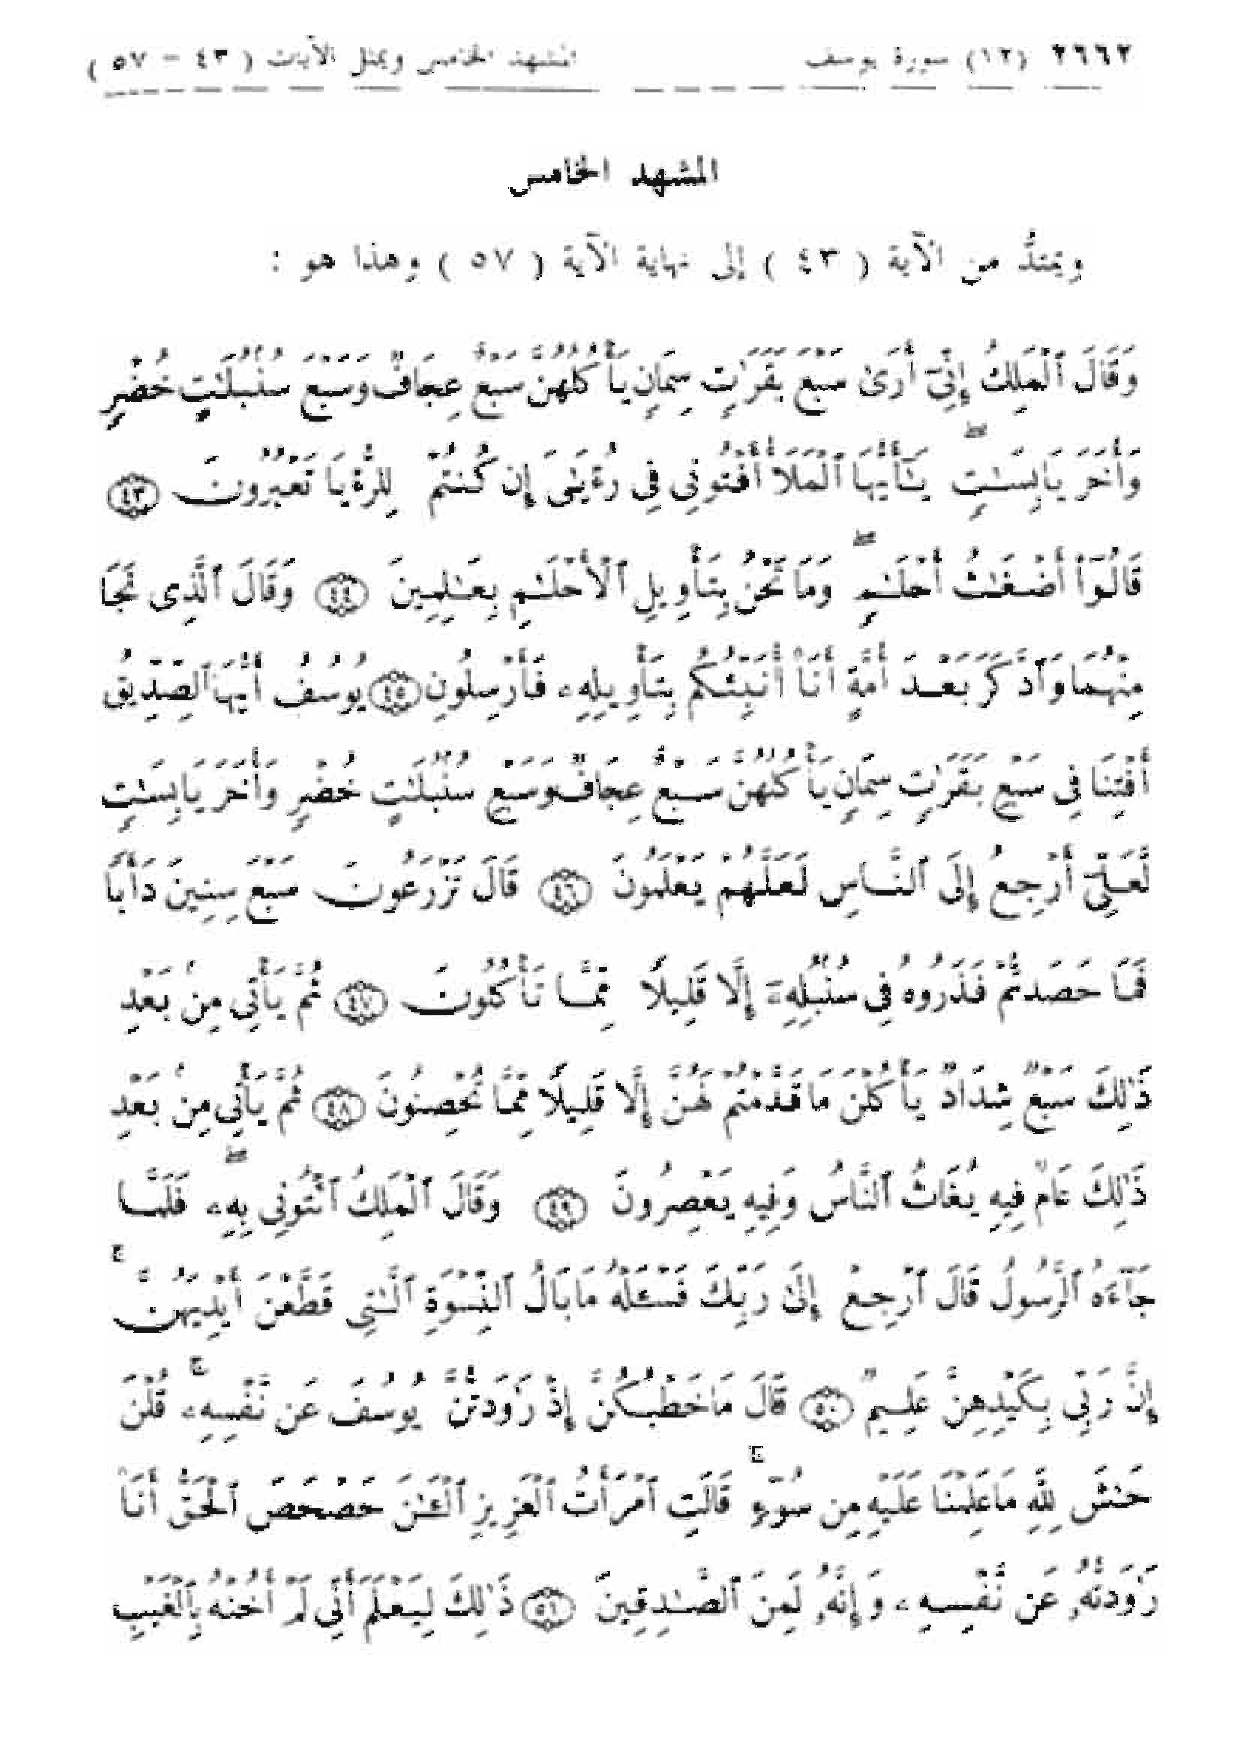 ٢٦٦٢ (١٢) سورة يوسف المشهد الخامس ويمثل الآيات ( ٤٣ - ٥٧ )
المشهد الخامس
ويمتدُّ من الآية ( ٤٣ ) إلى نهاية الآية ( ٥٧ ) وهذا هو :
وَقَالَ ٱلْمَلِكُ إِنِّىٓ أَرَىٰ سَبْعَ بَقَرَٰتٍ سِمَانٍ يَأْكُلُهُنَّ سَبْعٌ عِجَافٌ وَسَبْعَ سُنۢبُلَٰتٍ خُضْرٍ
وَأُخَرَ يَابِسَٰتٍ ۖ يَٰٓأَيُّهَا ٱلْمَلَأُ أَفْتُونِى فِى رُءْيَٰىَ إِن كُنتُمْ لِلرُّءْيَا تَعْبُرُونَ ٤٣
قَالُوٓا۟ أَضْغَٰثُ أَحْلَٰمٍ ۖ وَمَا نَحْنُ بِتَأْوِيلِ ٱلْأَحْلَٰمِ بِعَٰلِمِينَ ٤٤ وَقَالَ ٱلَّذِى نَجَا
مِنْهُمَا وَٱدَّكَرَ بَعْدَ أُمَّةٍ أَنَا۠ أُنَبِّئُكُم بِتَأْوِيلِهِۦ فَأَرْسِلُونِ ٤٥ يُوسُفُ أَيُّهَا ٱلصِّدِّيقُ
أَفْتِنَا فِى سَبْعِ بَقَرَٰتٍ سِمَانٍ يَأْكُلُهُنَّ سَبْعٌ عِجَافٌ وَسَبْعِ سُنۢبُلَٰتٍ خُضْرٍ وَأُخَرَ يَابِسَٰتٍ
لَّعَلِّىٓ أَرْجِعُ إِلَى ٱلنَّاسِ لَعَلَّهُمْ يَعْلَمُونَ ٤٦ قَالَ تَزْرَعُونَ سَبْعَ سِنِينَ دَأَبًا
فَمَا حَصَدتُّمْ فَذَرُوهُ فِى سُنۢبُلِهِۦٓ إِلَّا قَلِيلًا مِّمَّا تَأْكُلُونَ ٤٧ ثُمَّ يَأْتِى مِنۢ بَعْدِ
ذَٰلِكَ سَبْعٌ شِدَادٌ يَأْكُلْنَ مَا قَدَّمْتُمْ لَهُنَّ إِلَّا قَلِيلًا مِّمَّا تُحْصِنُونَ ٤٨ ثُمَّ يَأْتِى مِنۢ بَعْدِ
ذَٰلِكَ عَامٌ فِيهِ يُغَاثُ ٱلنَّاسُ وَفِيهِ يَعْصِرُونَ ٤٩ وَقَالَ ٱلْمَلِكُ ٱئْتُونِى بِهِۦ ۖ فَلَمَّا
جَآءَهُ ٱلرَّسُولُ قَالَ ٱرْجِعْ إِلَىٰ رَبِّكَ فَسْـَٔلْهُ مَا بَالُ ٱلنِّسْوَةِ ٱلَّٰتِى قَطَّعْنَ أَيْدِيَهُنَّ ۚ
إِنَّ رَبِّى بِكَيْدِهِنَّ عَلِيمٌ ٥٠ قَالَ مَا خَطْبُكُنَّ إِذْ رَٰوَدتُّنَّ يُوسُفَ عَن نَّفْسِهِۦ ۚ قُلْنَ
حَٰشَ لِلَّهِ مَا عَلِمْنَا عَلَيْهِ مِن سُوٓءٍ ۚ قَالَتِ ٱمْرَأَتُ ٱلْعَزِيزِ ٱلْـَٰٔنَ حَصْحَصَ ٱلْحَقُّ أَنَا۠
رَٰوَدتُّهُۥ عَن نَّفْسِهِۦ وَإِنَّهُۥ لَمِنَ ٱلصَّٰدِقِينَ ٥١ ذَٰلِكَ لِيَعْلَمَ أَنِّى لَمْ أَخُنْهُ بِٱلْغَيْبِ